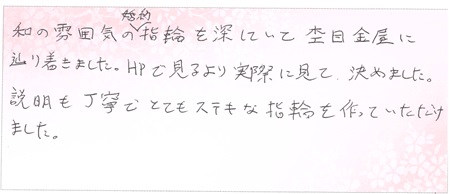 和の雰囲気の婚約指輪を探していて 杢目金屋に
辿り着きました。HPで見るより実際に見て、決めました。
説明も丁寧でとてもステキな指輪を作っていただけ
ました。